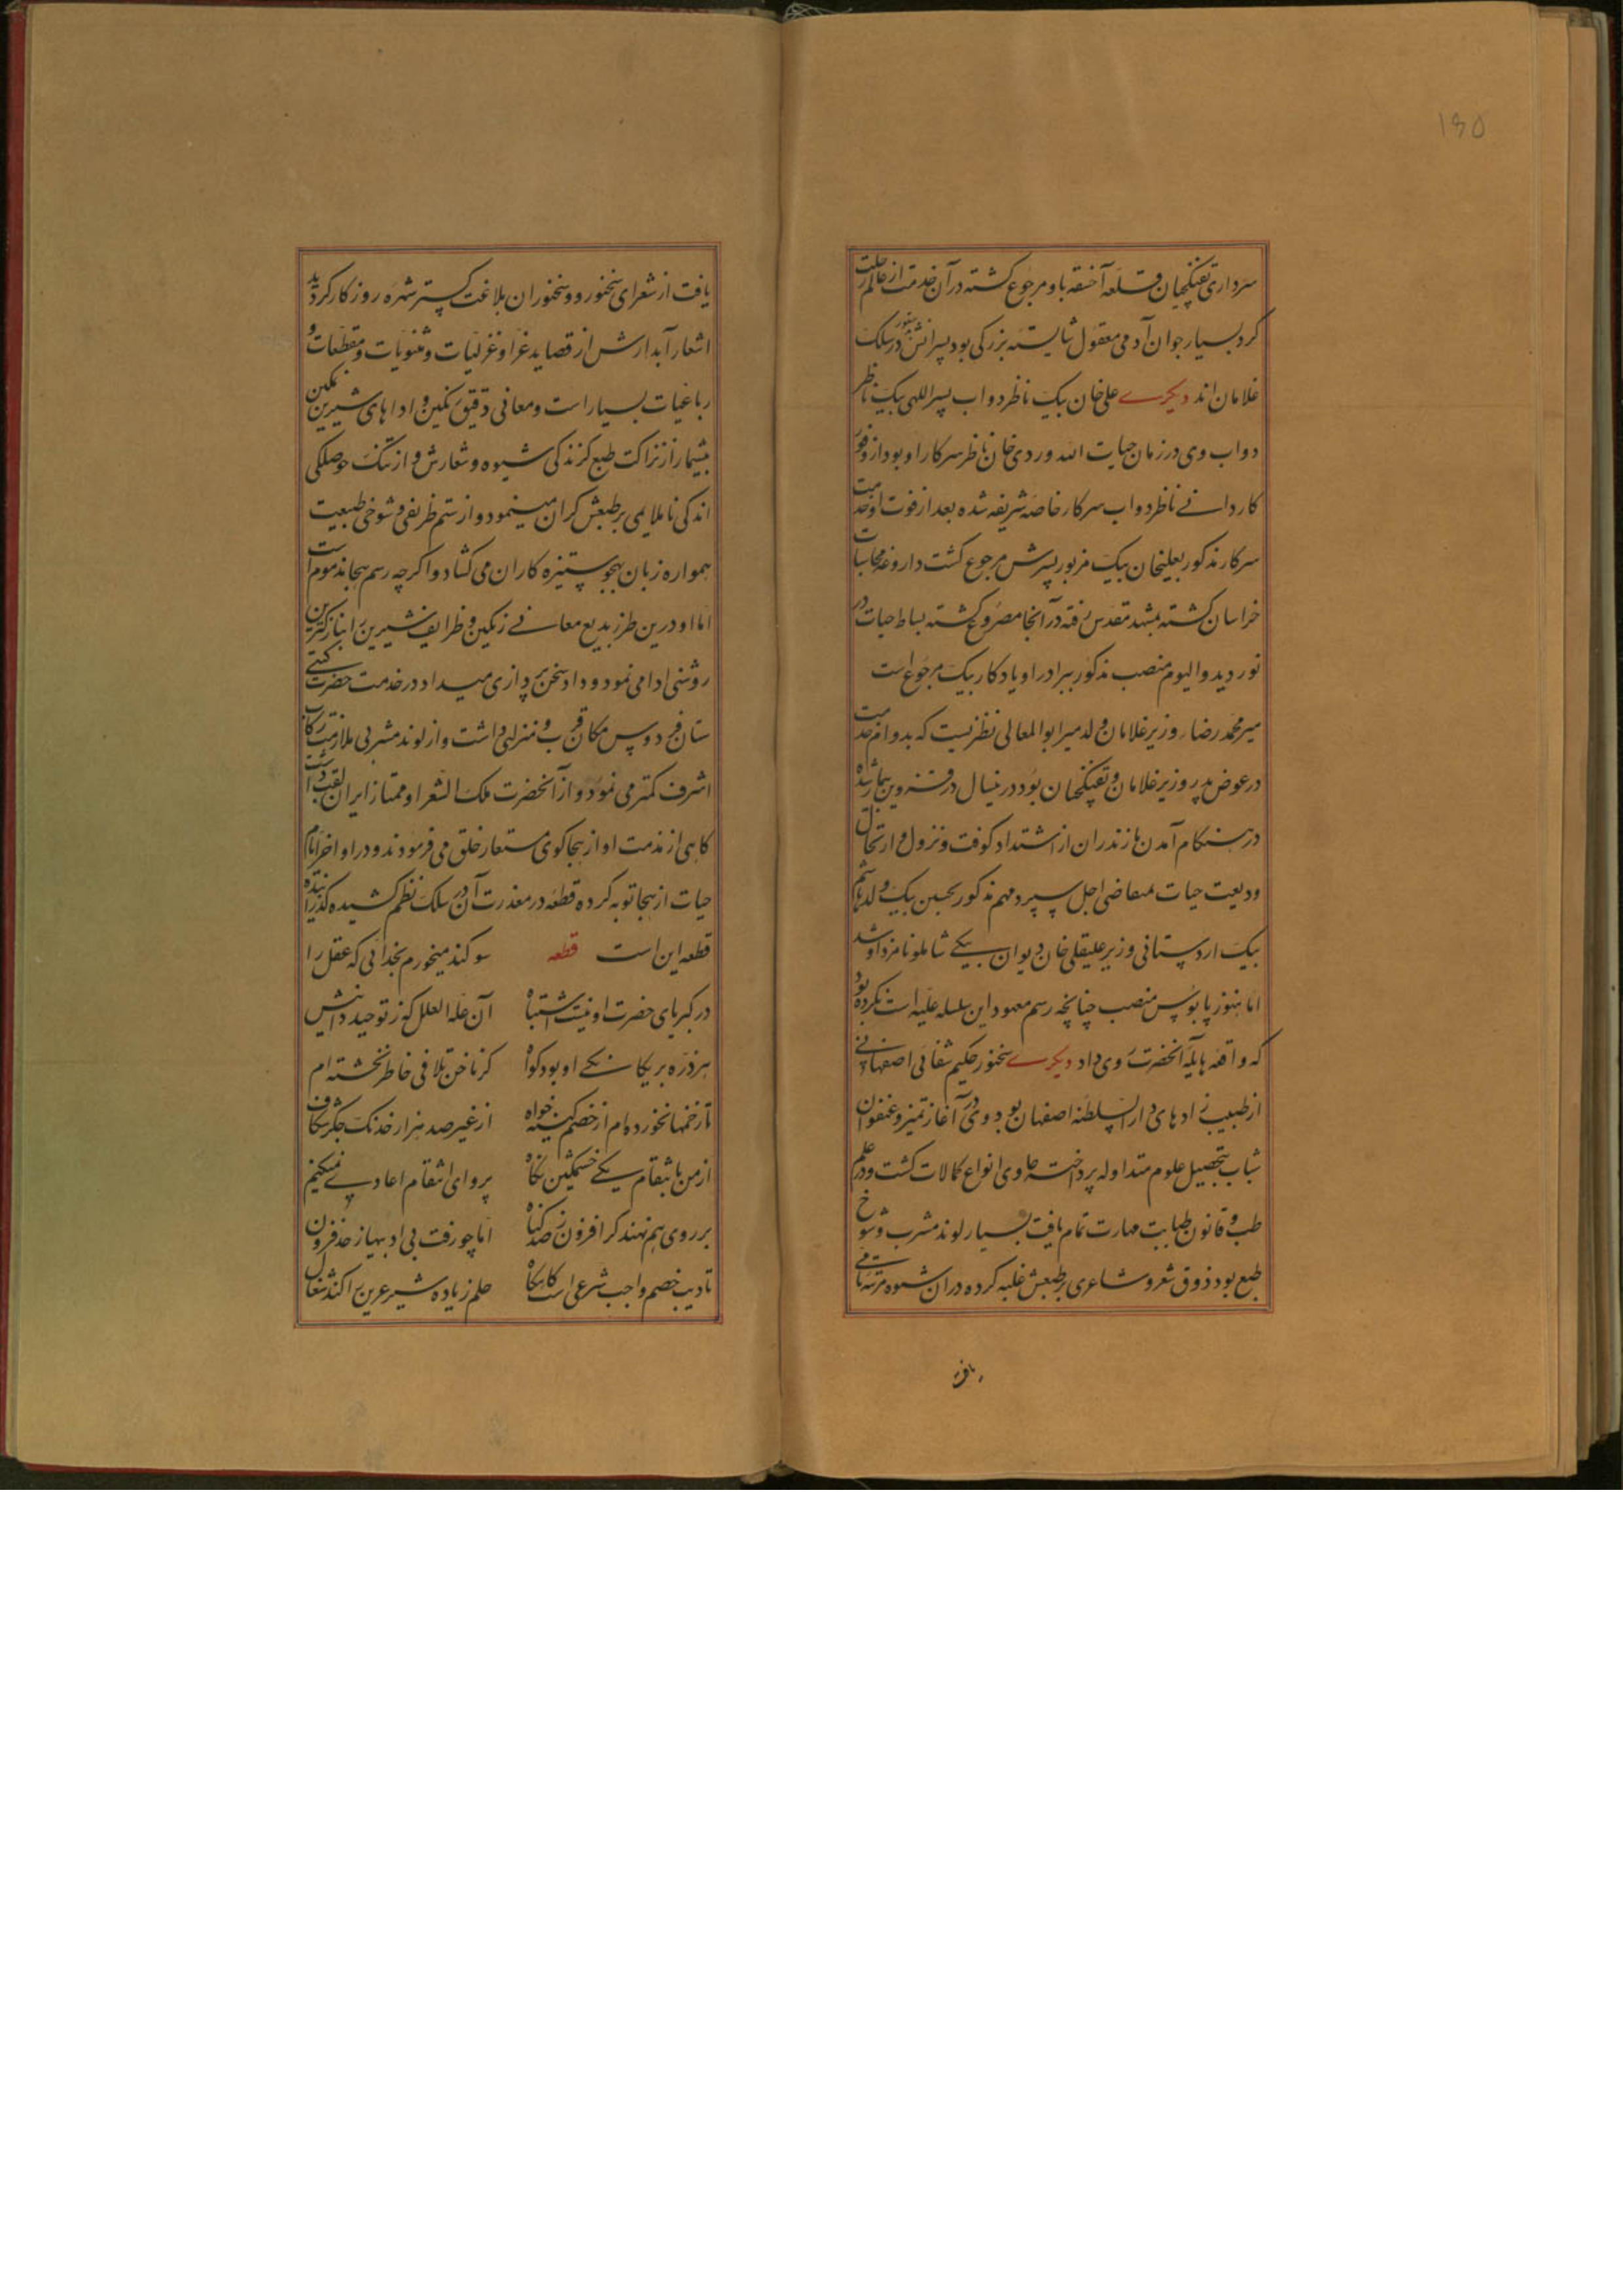 ۱۹۵
سرداری تفنگچیان قلعه آخسقه باو مرجوع کشته در آن خدمت از عالم رحلت
کرد بسیار جوان آدمی معقول شایسته بزرکی بود پسرانش هنوز در سلک
غلامان اند دیکری علی خان بیک ناظر دواب پسر اللهی بیک ناظر
دواب وی در زمان حیات الله وردی خان ناظر سرکار او بود از وفور
کاردانی ناظر دواب سرکار خاصه شریفه شده بعد از فوت او خدمت
سرکار مذکور بعلیخان بیک مزبور پسرش مرجوع کشت داروغه محاسبات
خراسان کشته بمشهد مقدس رفته در آنجا مصروع کشته بساط حیات در
نوردید و الیوم منصب مذکور ببرادر او یادکار بیک مرجوع است
میر محمد رضا وزیر غلامان ولد میر ابوالمعالی نطنزیست که بدوام خدمت
در عوض پدر وزیر غلامان و تفنکچیان بود درینسال در قزوین بیمار شده
در هنکام آمدن مازندران از اشتداد کوفت و نزول و ارتحال
ودیعت حیات بمتقاضی اجل سپرد مهم مذکور بحسین بیک ولد هاشم
بیک اردستانی وزیر علیقلی خان دیوان بیکی شاملو نامزد او شد
اما هنوز پابوس منصب چنانچه رسم معهود این سلسله علیه است نکرده بود
که واقعه هایله آنحضرت روی داد دیکری سخنور حکیم شفائی اصفهانی
از طبیب زادهای دار السلطنه اصفهان بود وی در آغاز تمیز و عنفوان
شباب بتحصیل علوم متداوله پرداخته حاوی انواع کمالات کشت و در علم
طب و قانون طبابت مهارت تمام یافت بسیار لوند مشرب و شوخ
طبع بود ذوق شعر و شاعری بر طبعش غلبه کرده در ان شیوه مرتبه نامی
یافت
یافت از شعرای سخنور و سخنوران بلاغت کستر شهره روزکار کردید
اشعار آبدارش از قصاید غرا و غزلیات و مثنویات و مقطعات و
رباعیات بسیار است و معانی دقیق نکین و اداهای شیرین نمکین
بیشمار از نزاکت طبع کزندکی شیوه و شعارش و از تنک حوصلکی
اندکی ناملایمی بر طبعش کران مینمود و از ستم ظریفی و شوخی طبیعت
همواره زبان بهجو ستیزه کاران می کشاد و اکرچه رسم هجا مذموم است
اما او درین طرز بدیع معانی رنکین و ظرایف شیرین را بنازکترین
روشنی ادا می نمود و داد سخن پردازی میداد در خدمت حضرت کیتی
ستان فردوس مکان قرب و منزلتی داشت و از لوند مشربی ملازمت رکاب
اشرف کمتر می نمود و از آنحضرت ملک الشعرا و ممتاز ایران لقب داشت
کاهی از مذمت او از هجاکوی مستعار خلق می فرمودند و در اواخر ایام
حیات از هجا توبه کرده قطعه در معذرت آن در سلک نظم کشیده کذرانیده
قطعه این است قطعه سوکند میخورم بخدائی که عقل را
در کبریای حضرت او نیست اشتباه آن علة العلل که ز توحید دانش
هر ذره بر یکانکی او بود کواه کز ناخن تلافی خاطر نخسته ام
تا زخمها نخورده ام از خصم کینه خواه از غیر صد هزار خدنک جکر شکاف
از من بانتقام یکی خشمکین نکاه پروای انتقام اعادی نمیکنیم
بر روی هم نهند کر افزون ز صد کناه اما چو رفت بی ادبیها ز حد فزون
تادیب خصم واجب شرعی است کاه کاه حلم زیاده شیر عرین را کند شغال